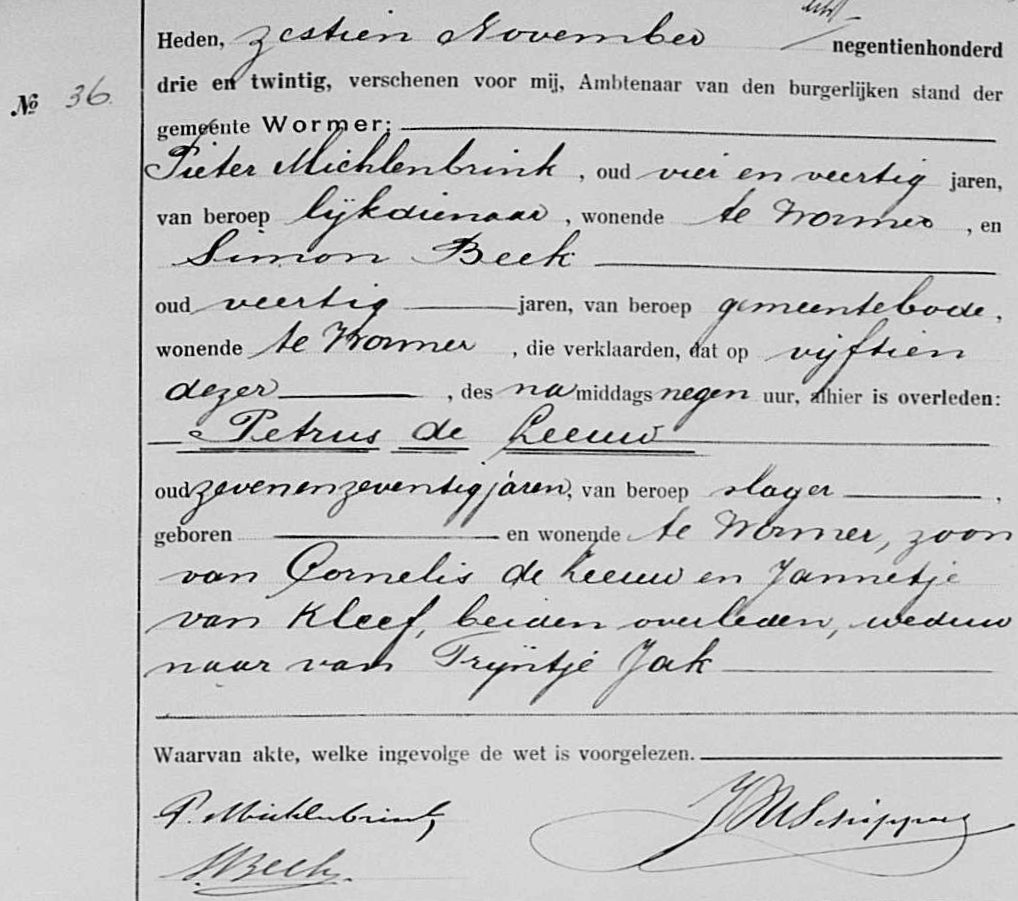 Heden, zestien November negentienhonderd
drie en twintig, verschenen voor mij, Ambtenaar van den burgerlijken stand der
No 36.
gemeente Wormer:
Pieter Michlenbrink, oud vier en veertig jaren,
van beroep lijkdienaar, wonende te Wormer, en
Simon Beek
oud veertig jaren, van beroep gemeentebode,
wonende te Wormer, die verklaarden, dat op vijftien
dezer, des namiddags negen uur, alhier is overleden:
Petrus de Leeuw
oud zevenenzeventig jaren, van beroep slager,
geboren en wonende te Wormer, zoon
van Cornelis de Leeuw en Jannetje
van Kleef, beiden overleden, weduw
naar van Trijntje Jak
Waarvan akte, welke ingevolge de wet is voorgelezen.
P. Michlenbrink
SBeek.